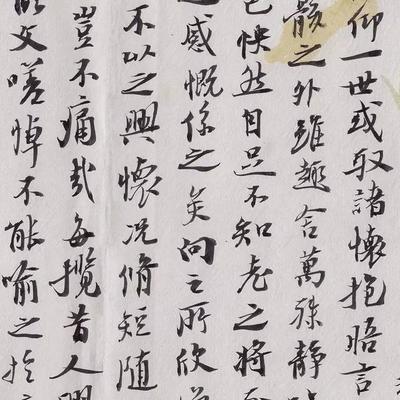 仰一世或取諸懷抱晤言
骸之外雖趣舍萬殊靜
己怏然自足不知老之將
感慨係之矣向之所欣
不以之興懷況脩短隨
豈不痛哉每攬昔人興
文嗟悼不能喻之於